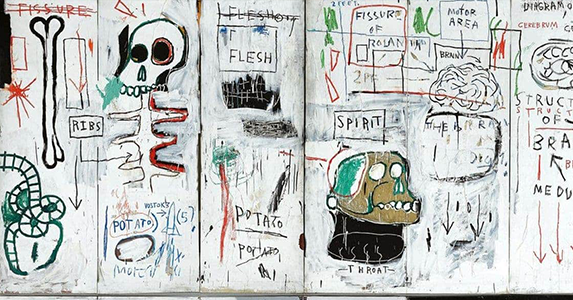 FISSURE
RIBS
POTATO
(5)
FLESH
FLESH
POTATO
POTATO
FISSURE
OF
ROLAN
MOTOR
AREA
BRAIN
SPIRIT
THROAT
DIAGRAM OF
CEREBRUM
STRUCT
STRUCT
OF
BRA
MEDU